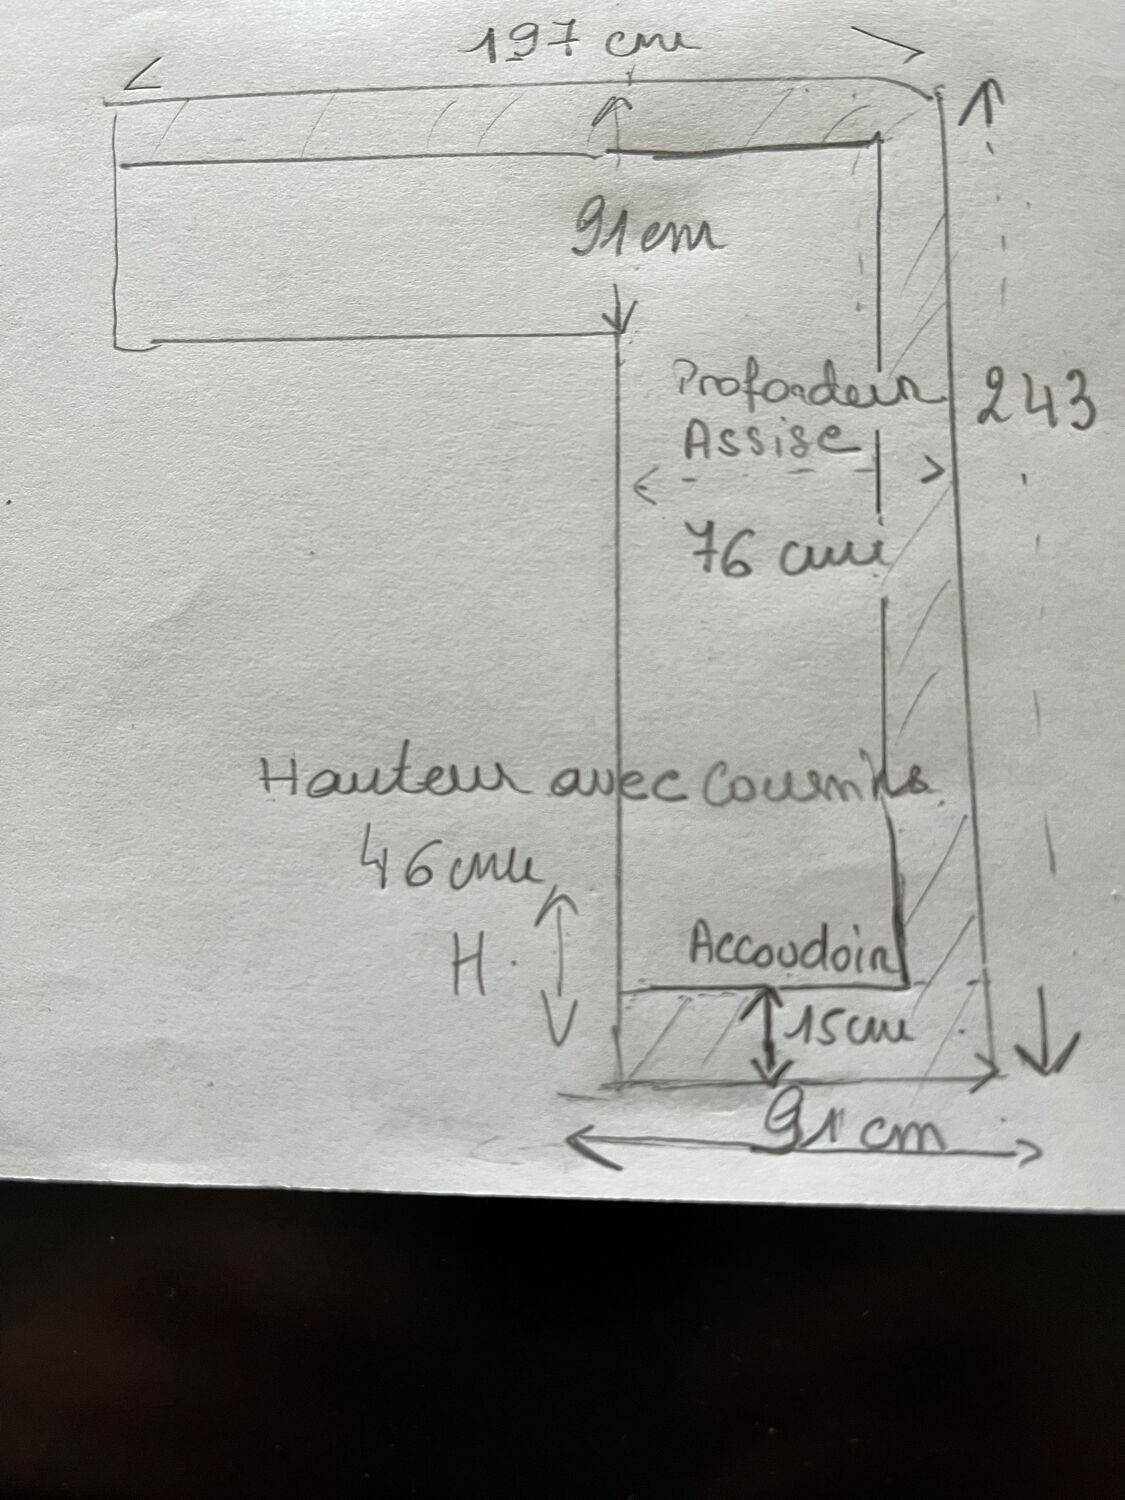 197 cm
91 cm
Profondeur
Assise
243
76 cm
Hauteur avec Coussins
46 cm
H.
Accoudoir
15 cm
91 cm